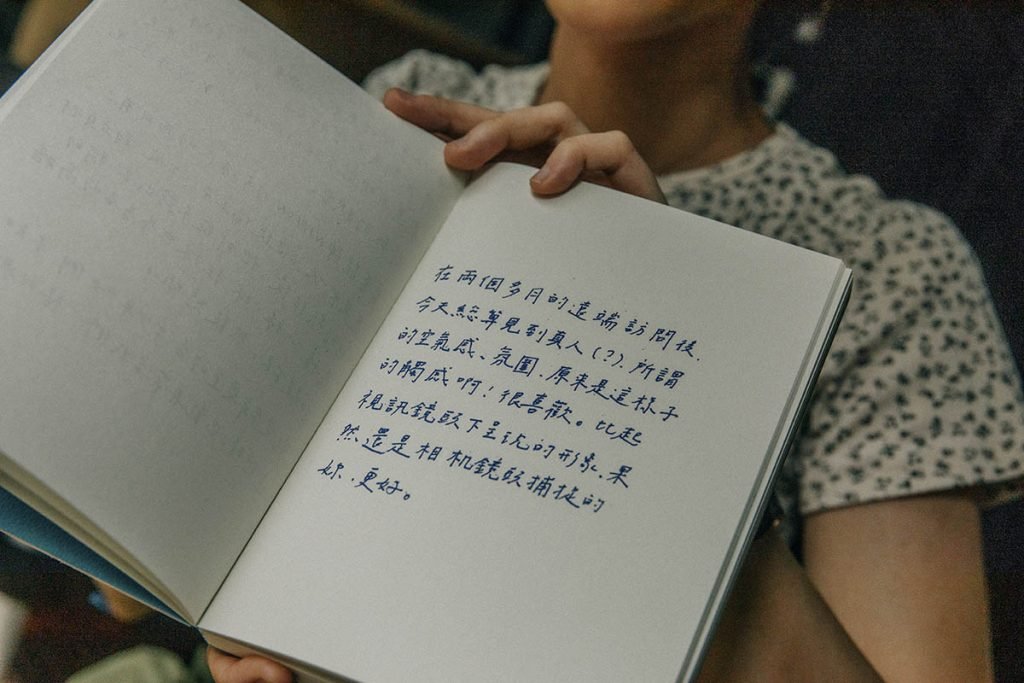 在兩個多月的遠端訪問後,
今天總算見到真人(?). 所謂
的空氣感、氛圍, 原來是這樣子
的觸感啊!很喜歡。比起
視訊鏡頭下呈現的形象, 果
然還是相机鏡頭捕捉的
妳, 更好。